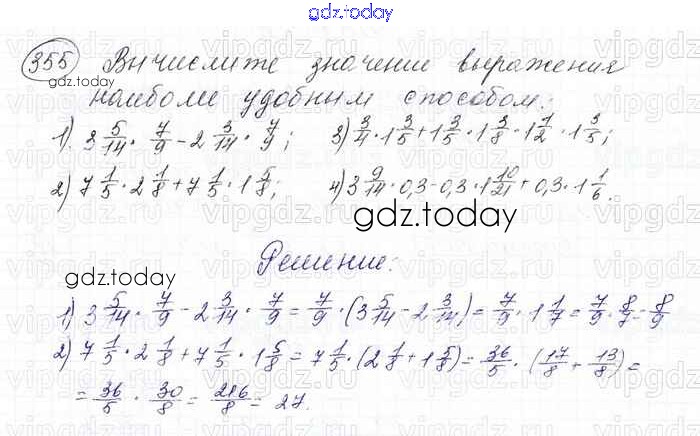 gdz.today
355 Вычислите значение выражения
gdz.today
наиболее удобным способом:
1) 3 5/14 · 7/9 - 2 3/14 · 7/9; 3) 3/4 · 1 3/5 + 1 3/5 · 1 3/8 - 1 1/2 · 1 3/5;
2) 7 1/5 · 2 1/8 + 7 1/5 · 1 5/8; 4) 3 9/14 · 0,3 - 0,3 · 1 10/21 + 0,3 · 1 1/6.
gdz.today
gdz.today
Решение:
1) 3 5/14 · 7/9 - 2 3/14 · 7/9 = 7/9 · (3 5/14 - 2 3/14) = 7/9 · 1 1/7 = 7/9 · 8/7 = 8/9
2) 7 1/5 · 2 1/8 + 7 1/5 · 1 5/8 = 7 1/5 · (2 1/8 + 1 5/8) = 36/5 · (17/8 + 13/8) =
= 36/5 · 30/8 = 216/8 = 27.